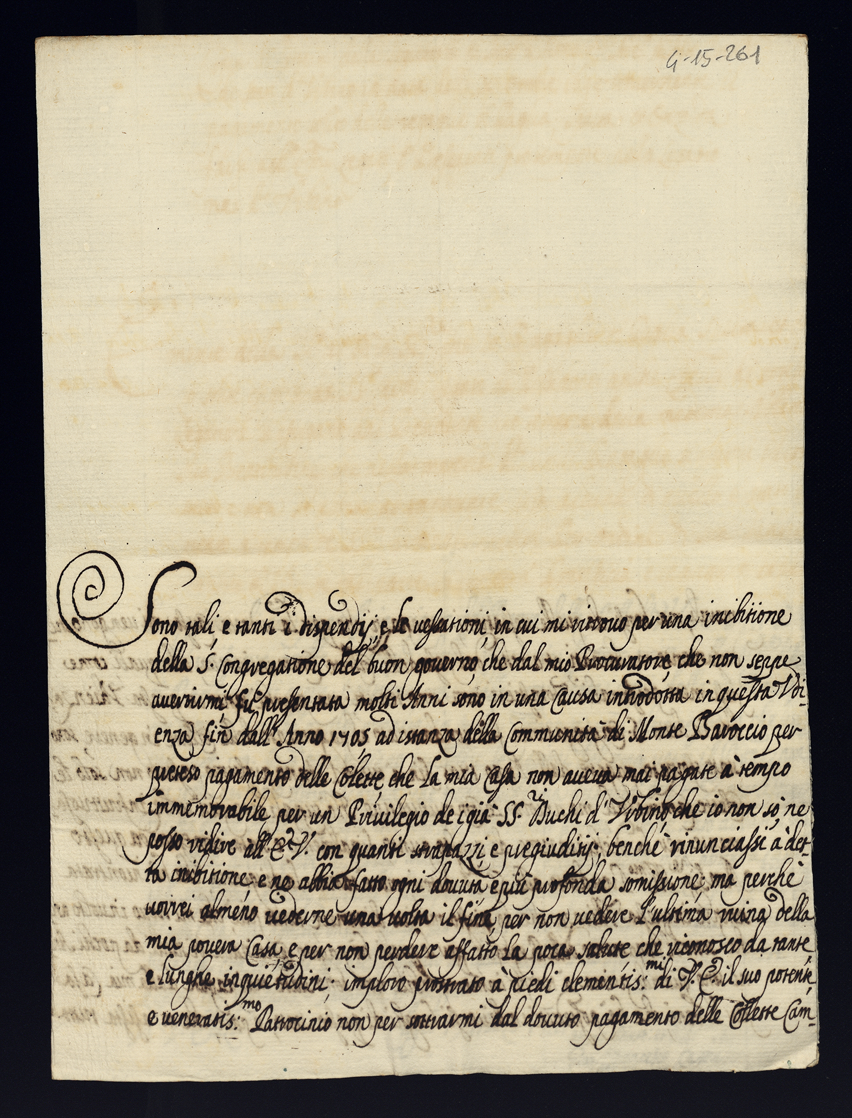 G-15-261
Sono tali e tanti i dispendij, e le vessationi, in cui mi ritrovo per una inibitione
della S. Congregatione del buon governo, che dal mio Procuratore che non seppe
avertirmi fù presentata molti Anni sono in una Causa introdotta in questa Udi-
enza fin dall' Anno 1705 ad istanza della Communità di Monte Baroccio per
preteso pagamento delle Collette che la mia Casa non aveva mai pagate à tempo
immemorabile per un Privilegio de i già SS.ri Duchi d' Urbino, che io non sò, ne
posso ridire all' E. V. con quanti strapazzi e pregiuditij, benche rinunciassi à det-
ta inibitione e ne abbia fatto ogni dovuta e più profonda somissione: ma perche
vorrei almeno vederne una volta il fine per non vedere l'ultima ruina della
mia povera Casa e per non perdere affatto la poca salute che riconosco da tante
e lunghe inquietudini: imploro prostrato à piedi clementis:mi di V. E. il suo potente
e veneratis:mo Patrocinio non per sottrarmi dal dovuto pagamento delle Collette Cam-